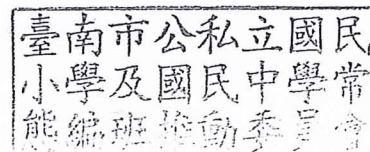 臺南市公私立國民
小學及國民中學常
能編班推動委員會